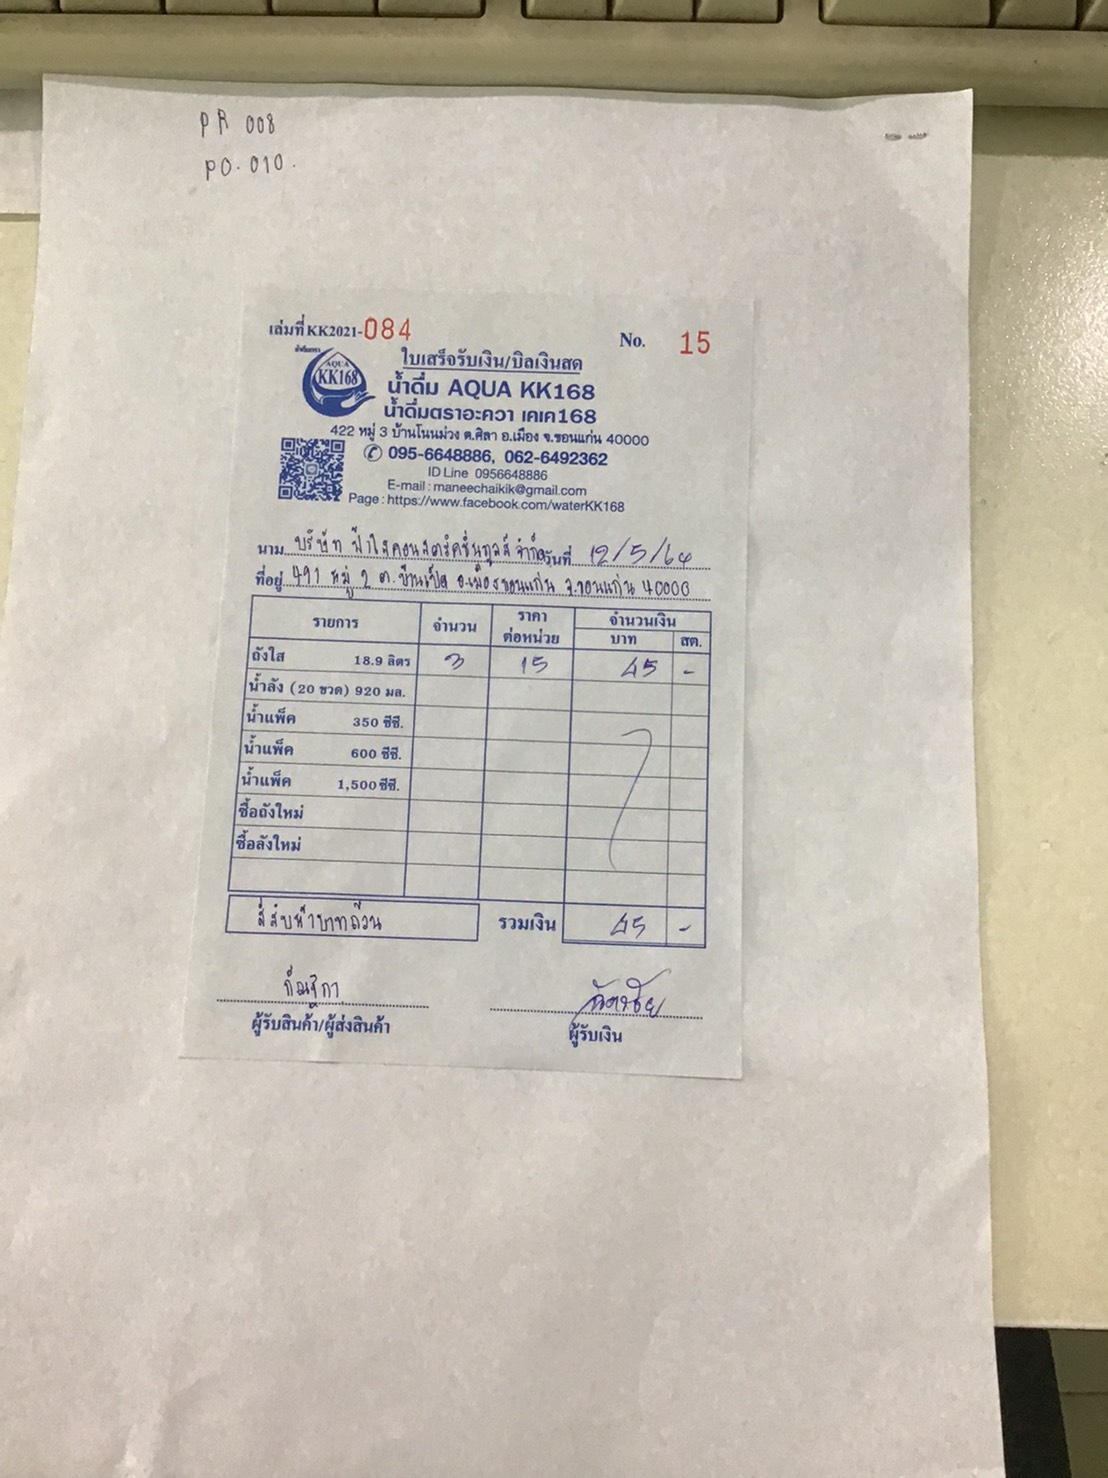 PR 008
PO. 010.
เล่มที่ KK2021-084
No. 15
ใบเสร็จรับเงิน/บิลเงินสด
AQUA
KK168
น้ำดื่ม AQUA KK168
น้ำดื่มตราอะควา เคเค168
422 หมู่ 3 บ้านโนนม่วง ต.ศิลา อ.เมือง จ.ขอนแก่น 40000
095-6648886, 062-6492362
ID Line 0956648886
E-mail : maneechaikik@gmail.com
Page : https://www.facebook.com/waterKK168
นาม บริษัท ฟ้าใสคอนสตรัคชั่นทูลส์ จำกัด วันที่ 12/5/64
ที่อยู่ 491 หมู่ 2 ต.บ้านเป็ด อ.เมืองขอนแก่น จ.ขอนแก่น 40000
รายการ จำนวน ราคาต่อหน่วย จำนวนเงิน
บาท สต.
ถังใส 18.9 ลิตร 3 15 45 -
น้ำลัง (20 ขวด) 920 มล.
น้ำแพ็ค 350 ซีซี.
น้ำแพ็ค 600 ซีซี.
น้ำแพ็ค 1,500 ซีซี.
ซื้อถังใหม่
ซื้อลังใหม่
สี่สิบห้าบาทถ้วน รวมเงิน 45 -
ผู้รับสินค้า/ผู้ส่งสินค้า
ผู้รับเงิน